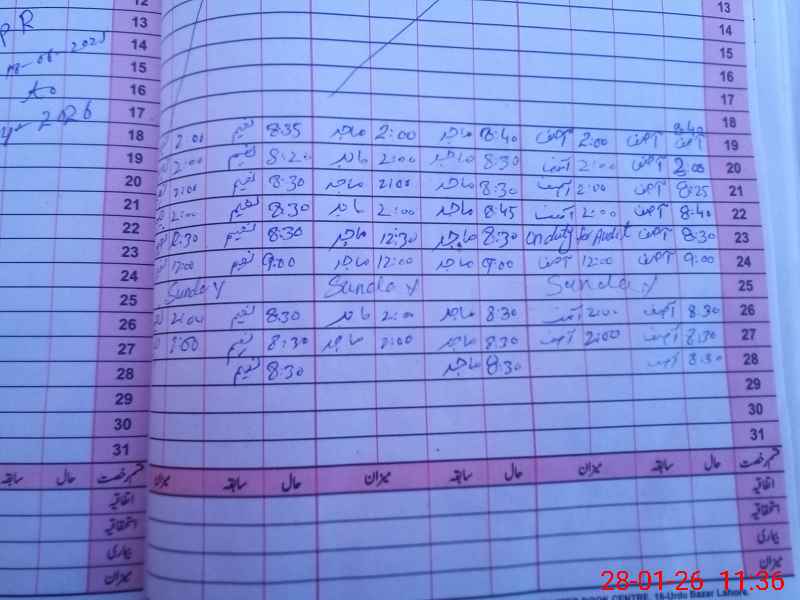 12
13
14
15
16
17
18
19
20
21
22
23
24
25
26
27
28
29
30
31
PR
to
2026
13
14
15
16
17
18
8:40 آصف 2:00 آصف 8:40 ماجد 2:00 ماجد 8:35 نعیم 2:00
19
20 2:00 آصف 2:00 آصف 8:30 ماجد 2:00 ماجد 8:20 نعیم 2:00
21 8:25 آصف 2:00 آصف 8:30 ماجد 2:00 ماجد 8:30 نعیم 2:00
22 8:40 آصف 2:00 آصف 8:45 ماجد 2:00 ماجد 8:30 نعیم 2:00
23 8:30 آصف on duty for Audit 8:30 ماجد 12:30 ماجد 8:30 نعیم
24 9:00 آصف 12:00 آصف 9:00 ماجد 12:00 ماجد 9:00 نعیم 12:00
25 Sunday Sunday Sunday
26 8:30 آصف 2:00 آصف 8:30 ماجد 2:00 ماجد 8:30 نعیم 2:00
27 8:30 آصف 2:00 آصف 8:30 ماجد 2:00 ماجد 8:30 نعیم
28 8:30 آصف 8:30 ماجد 8:30 نعیم
29
30
31
قسم رخصت حال سابقہ میزان حال سابقہ میزان حال سابقہ میزان
قسم رخصت حال سابقہ
اتفاقیہ
استحقاقیہ
بیماری
میزان
اتفاقیہ
استحقاقیہ
بیماری
میزان
BOOK CENTRE, 16-Urdu Bazar Lahore.
28-01-26 11:36